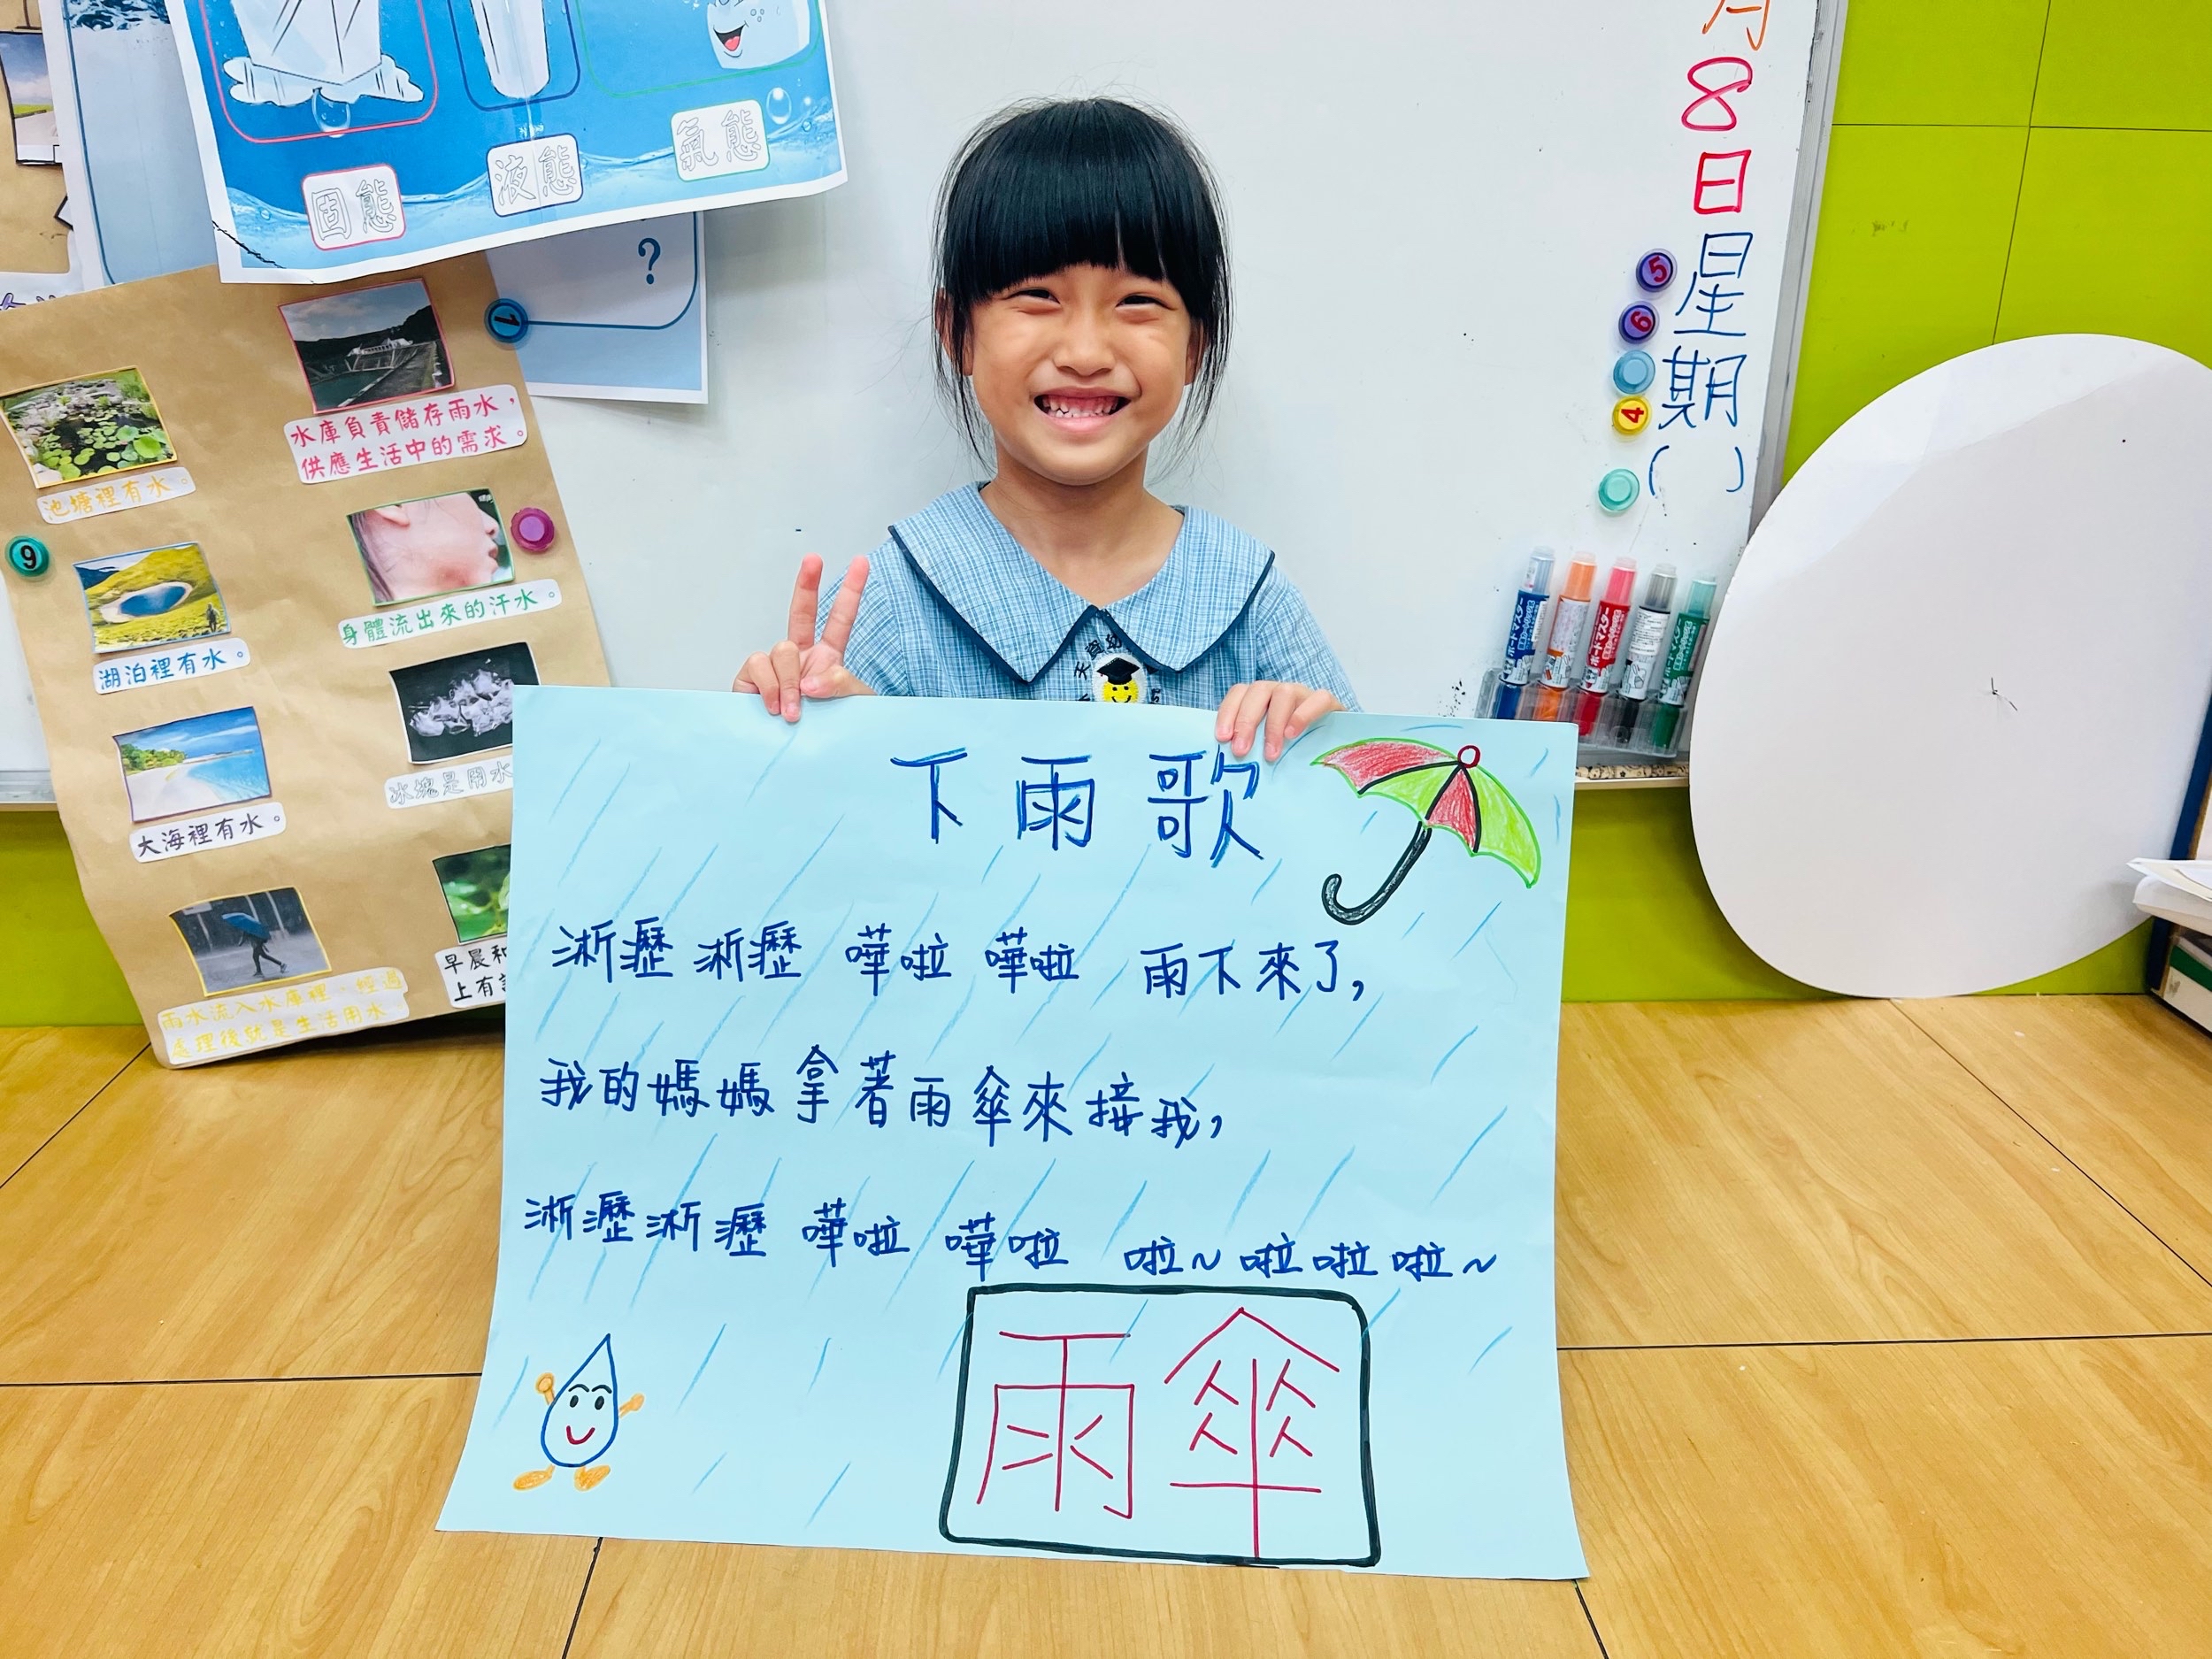 固態
液態
氣態
?
1
水庫負責儲存雨水，
供應生活中的需求。
池塘裡有水。
9
身體流出來的汗水。
湖泊裡有水。
冰塊是用水
大海裡有水。
早晨和
上有
雨水流入水庫裡，經過
處理後就是生活用水
月8日星期( )
5
6
4
ボードマスター
ボードマスター
下雨歌
淅瀝淅瀝 嘩啦 嘩啦 雨下來了,
我的媽媽拿著雨傘來接我,
淅瀝淅瀝 嘩啦 嘩啦 啦~啦啦啦~
雨傘